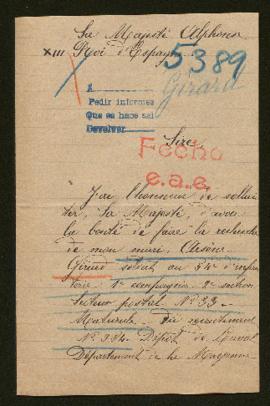 Sa Majesté Alphonse
XIII Roi d'Espagne
5389
Girard
A
Pedir informes
Que se hace saber
Devolver
Sire,
Fecho
e.a.e.
J'ai l'honneur de sollici
ter, Sa Majesté, d'avoir
la bonté de faire la recherche
de mon mari Arsène
Girard soldat au 54e d'infan
terie 1e compagnie 2e section
secteur postal No 33 -
Matricule du recrutement
No 984. Dépôt de Laval
Département de la Mayenne